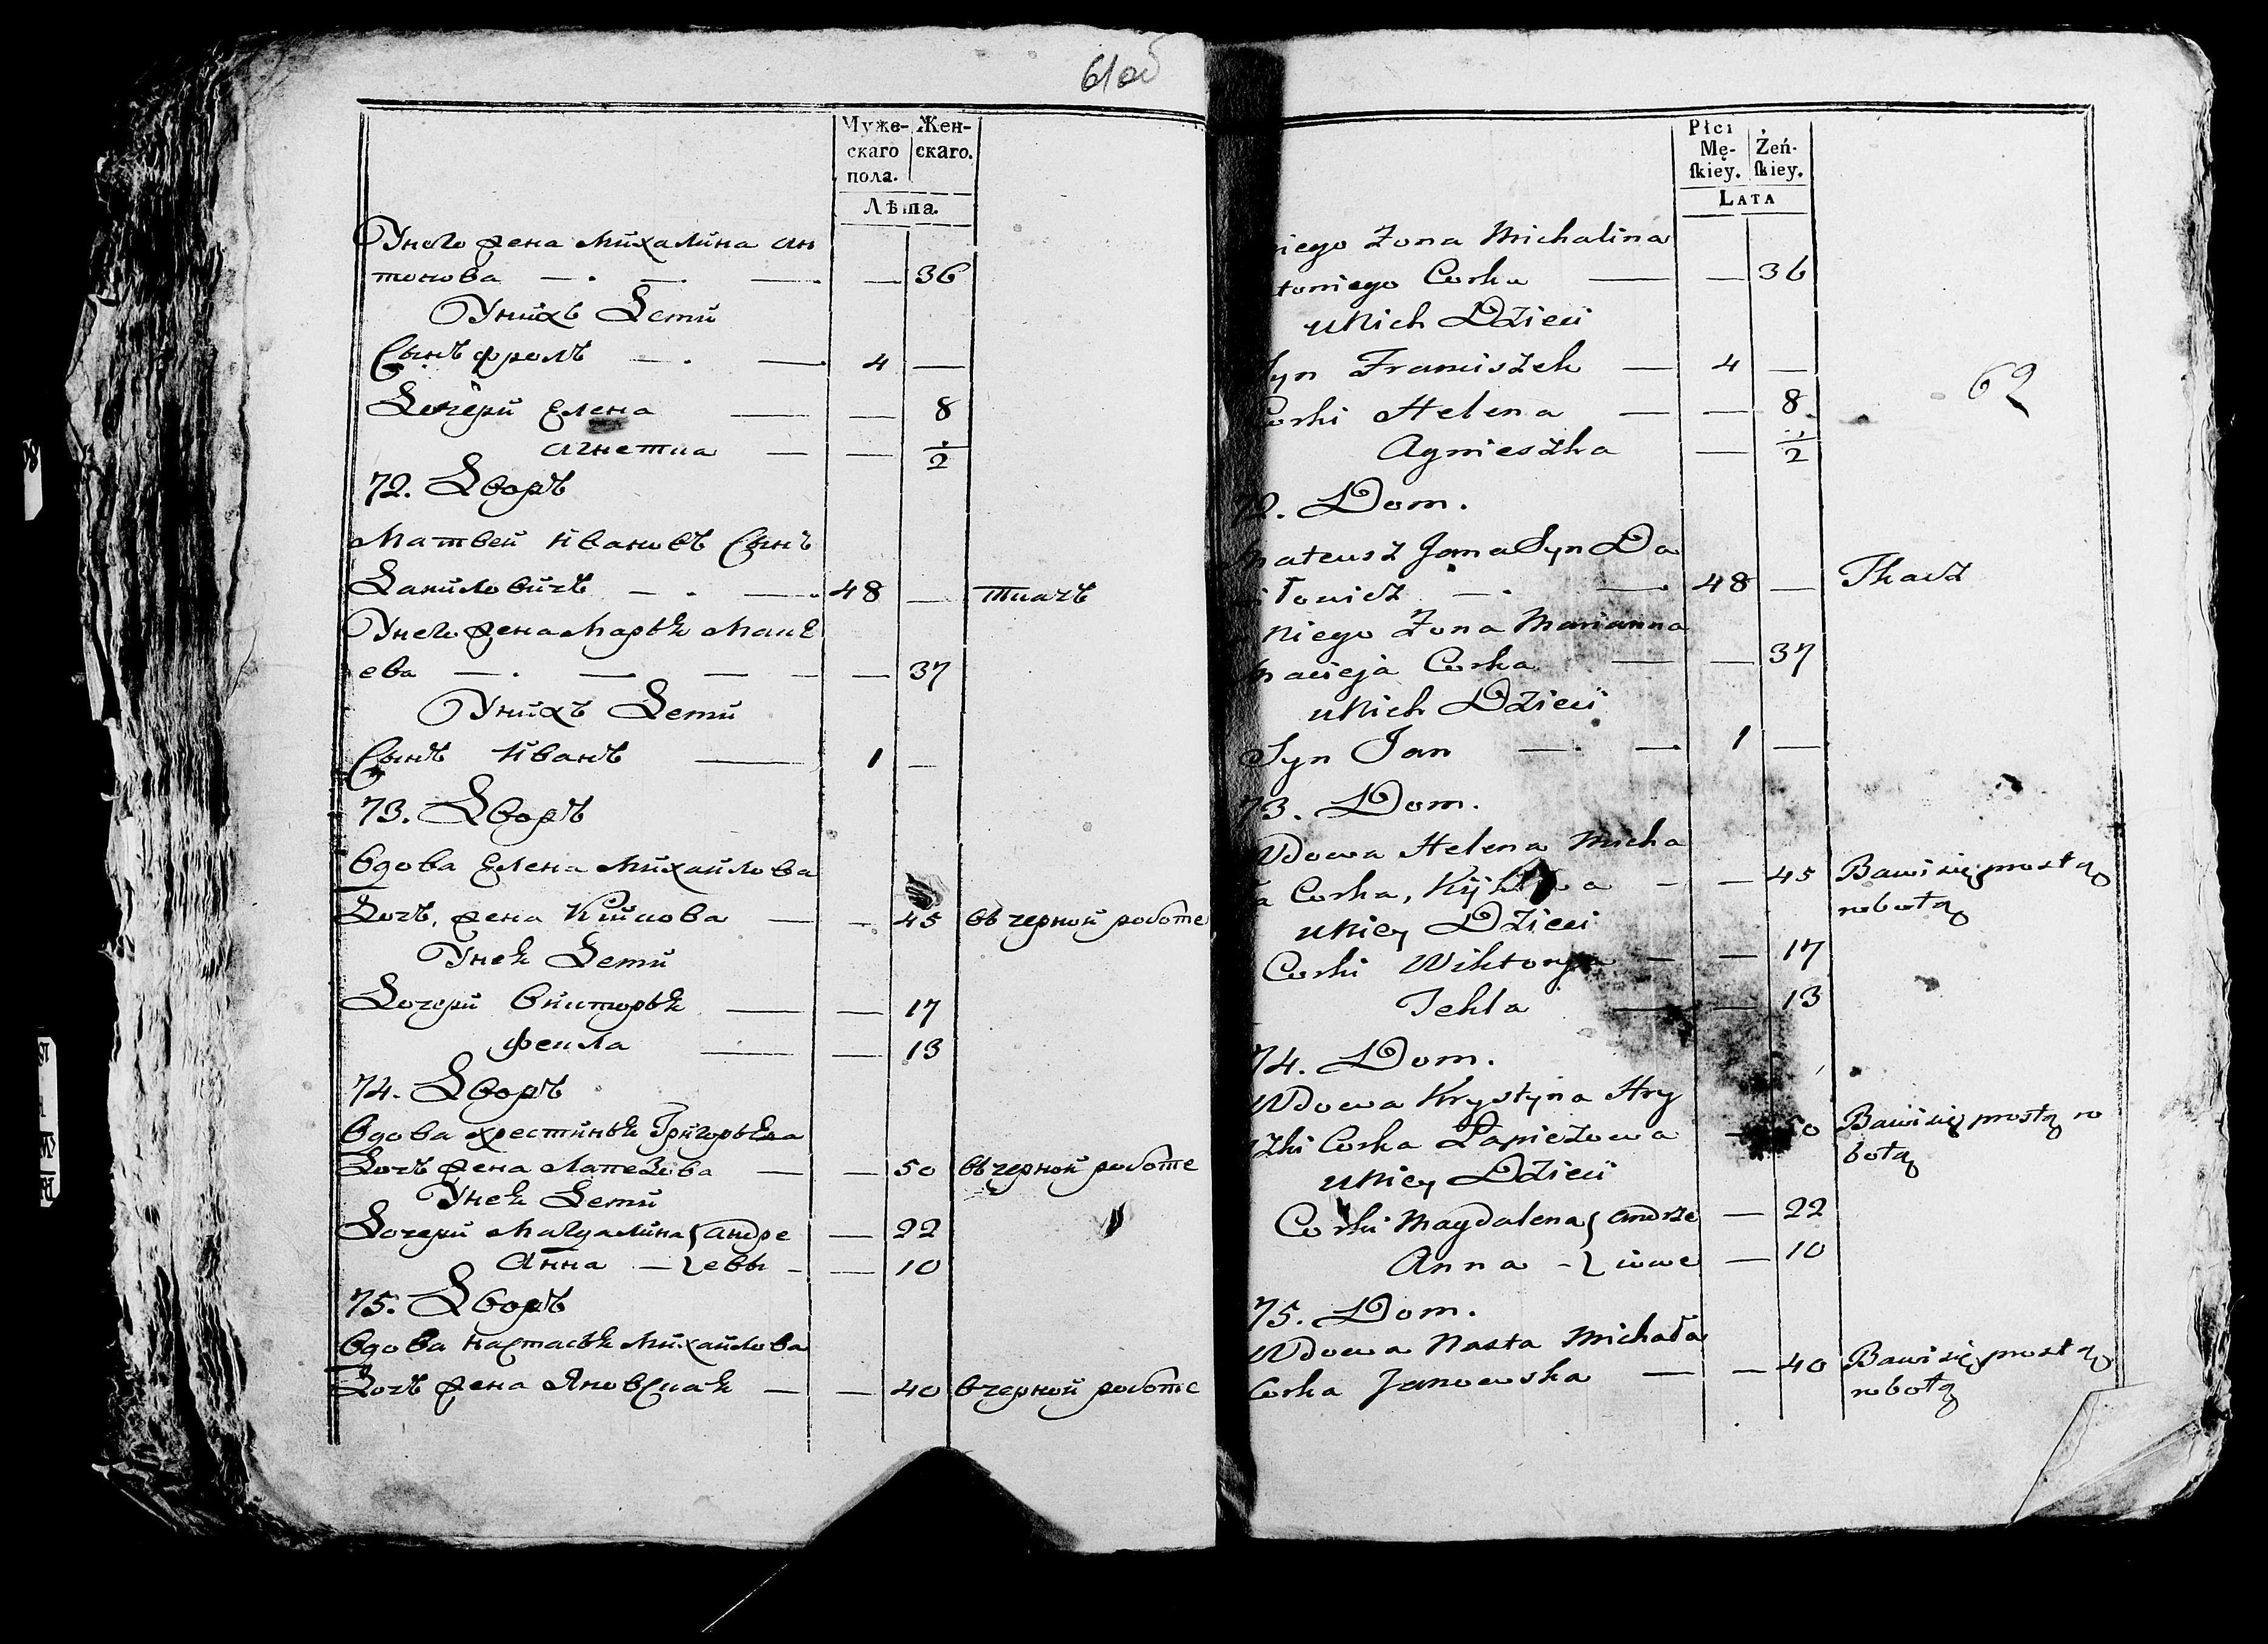 61об
Муже-
скаго
пола.
Жен-
скаго.
Лѣта.
Унего жена Михалина ан
тонова — . — — — 36
Унихъ Дети
Сынъ фролъ — . — 4 —
Дочери Елена — — 8
Агнетка — — 1/2
72. Дворъ
Матвей Ивановъ Сынъ
Даниловичъ — . — 48 — ткачъ
Унего жена Марья Мацѣ
ева — . — — — 37
Унихъ Дети
Сынъ Иванъ — 1 —
73. Дворъ
Вдова Елена Михайлова
Дочь, жена Кийкова — — 45 въ черной работе
Унея Дети
Дочери Викторья — — 17
фекла — — 13
74. Дворъ
Вдова Христинья Григорьева
Дочь жена Лапезова — — 50 въ черной работе
Унея Дети
Дочери Магдалина { андре — 22
Анна — { евы - — 10
75. Дворъ
Вдова Настасья Михайлова
Дочь жена Яновская — — 40 в черной работе
Płci
Mę-
ſkiey.
Żeń-
ſkiey.
LATA
niego Zona Michalina
toniego Corka — — 36
uNich Dzieci
Syn Franciszek — 4 —
62
Corki Helena — — 8
Agnieszka — 1/2
72. Dom.
Mateusz Jana Syn Da
iłowicz — . — 48 — Tkacz
u Niego Zona Marianna
Macieja Corka — — 37
uNich Dzieci
Syn Jan — . — 1 —
73. Dom.
Wdowa Helena Micha
ła Corka, — — 45 Bawi się prostą
robotą
uNiey Dzieci
Corki Wiktorya — — 17
Tekla — — 13
74. Dom.
Wdowa Krystyna Hry
Corka Łapiezowa — 50 Bawi się prostą ro
botą
uNiey Dzieci
Corki Magdalena { andrze — 22
Anna - { iowe — 10
75. Dom.
Wdowa Nasta Michała
Corka Janowska — — 40 Bawi się prostą
robotą